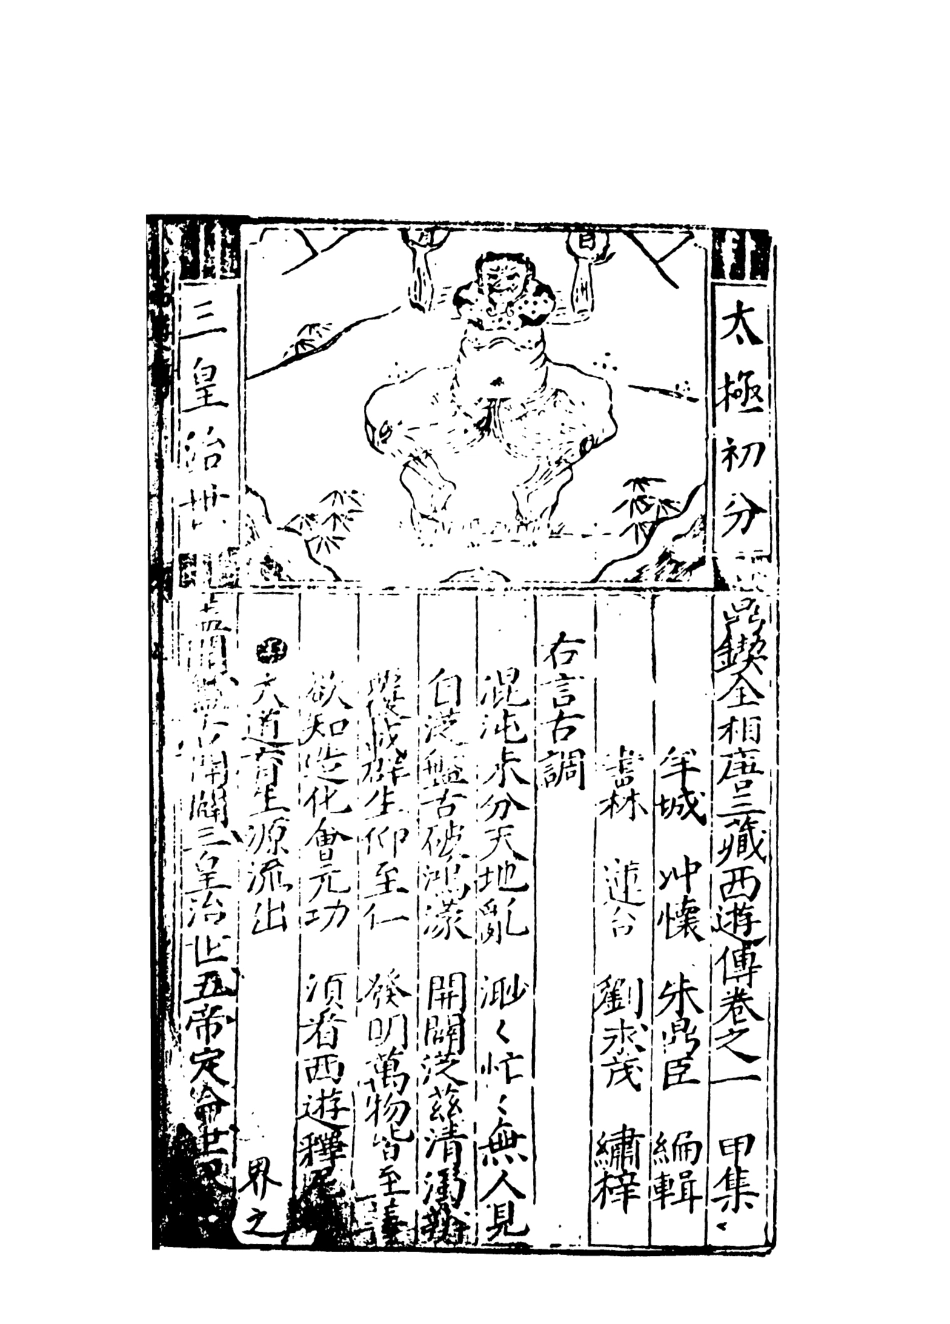 太極初分
三皇治世
鼎鍥全相唐三藏西遊傳卷之一 甲集
羊城 冲懷 朱鼎臣 編輯
書林 蓮台 劉求茂 繡梓
右言古調
混沌未分天地亂 渺〻忙〻無人見
自從盤古破鴻濛 開闢從茲清濁
群生仰至仁 發明萬物皆至善
欲知造化會元功 須看西遊釋厄
六道 生源流出
開闢三皇治世五帝定倫世界
界之